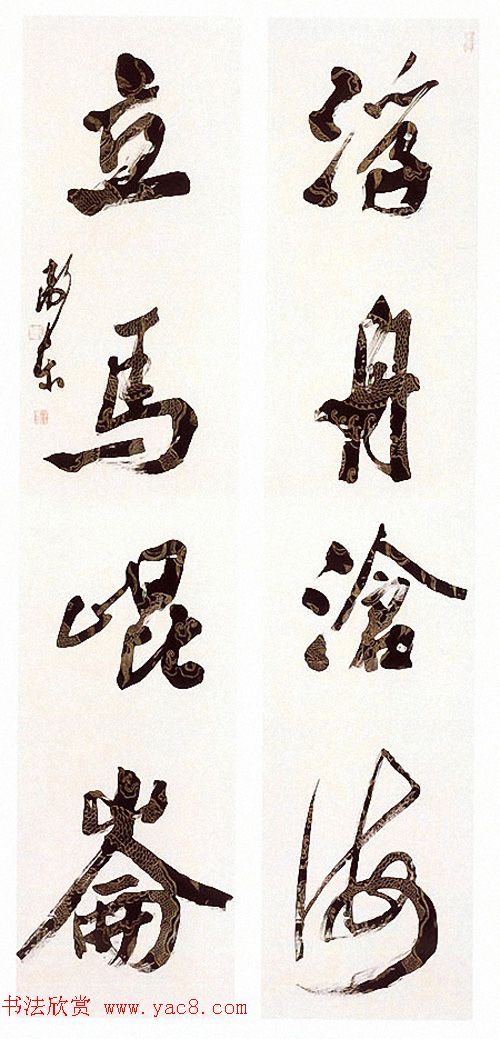 浮舟滄海
立馬崐崙
书法欣赏 www.yac8.com